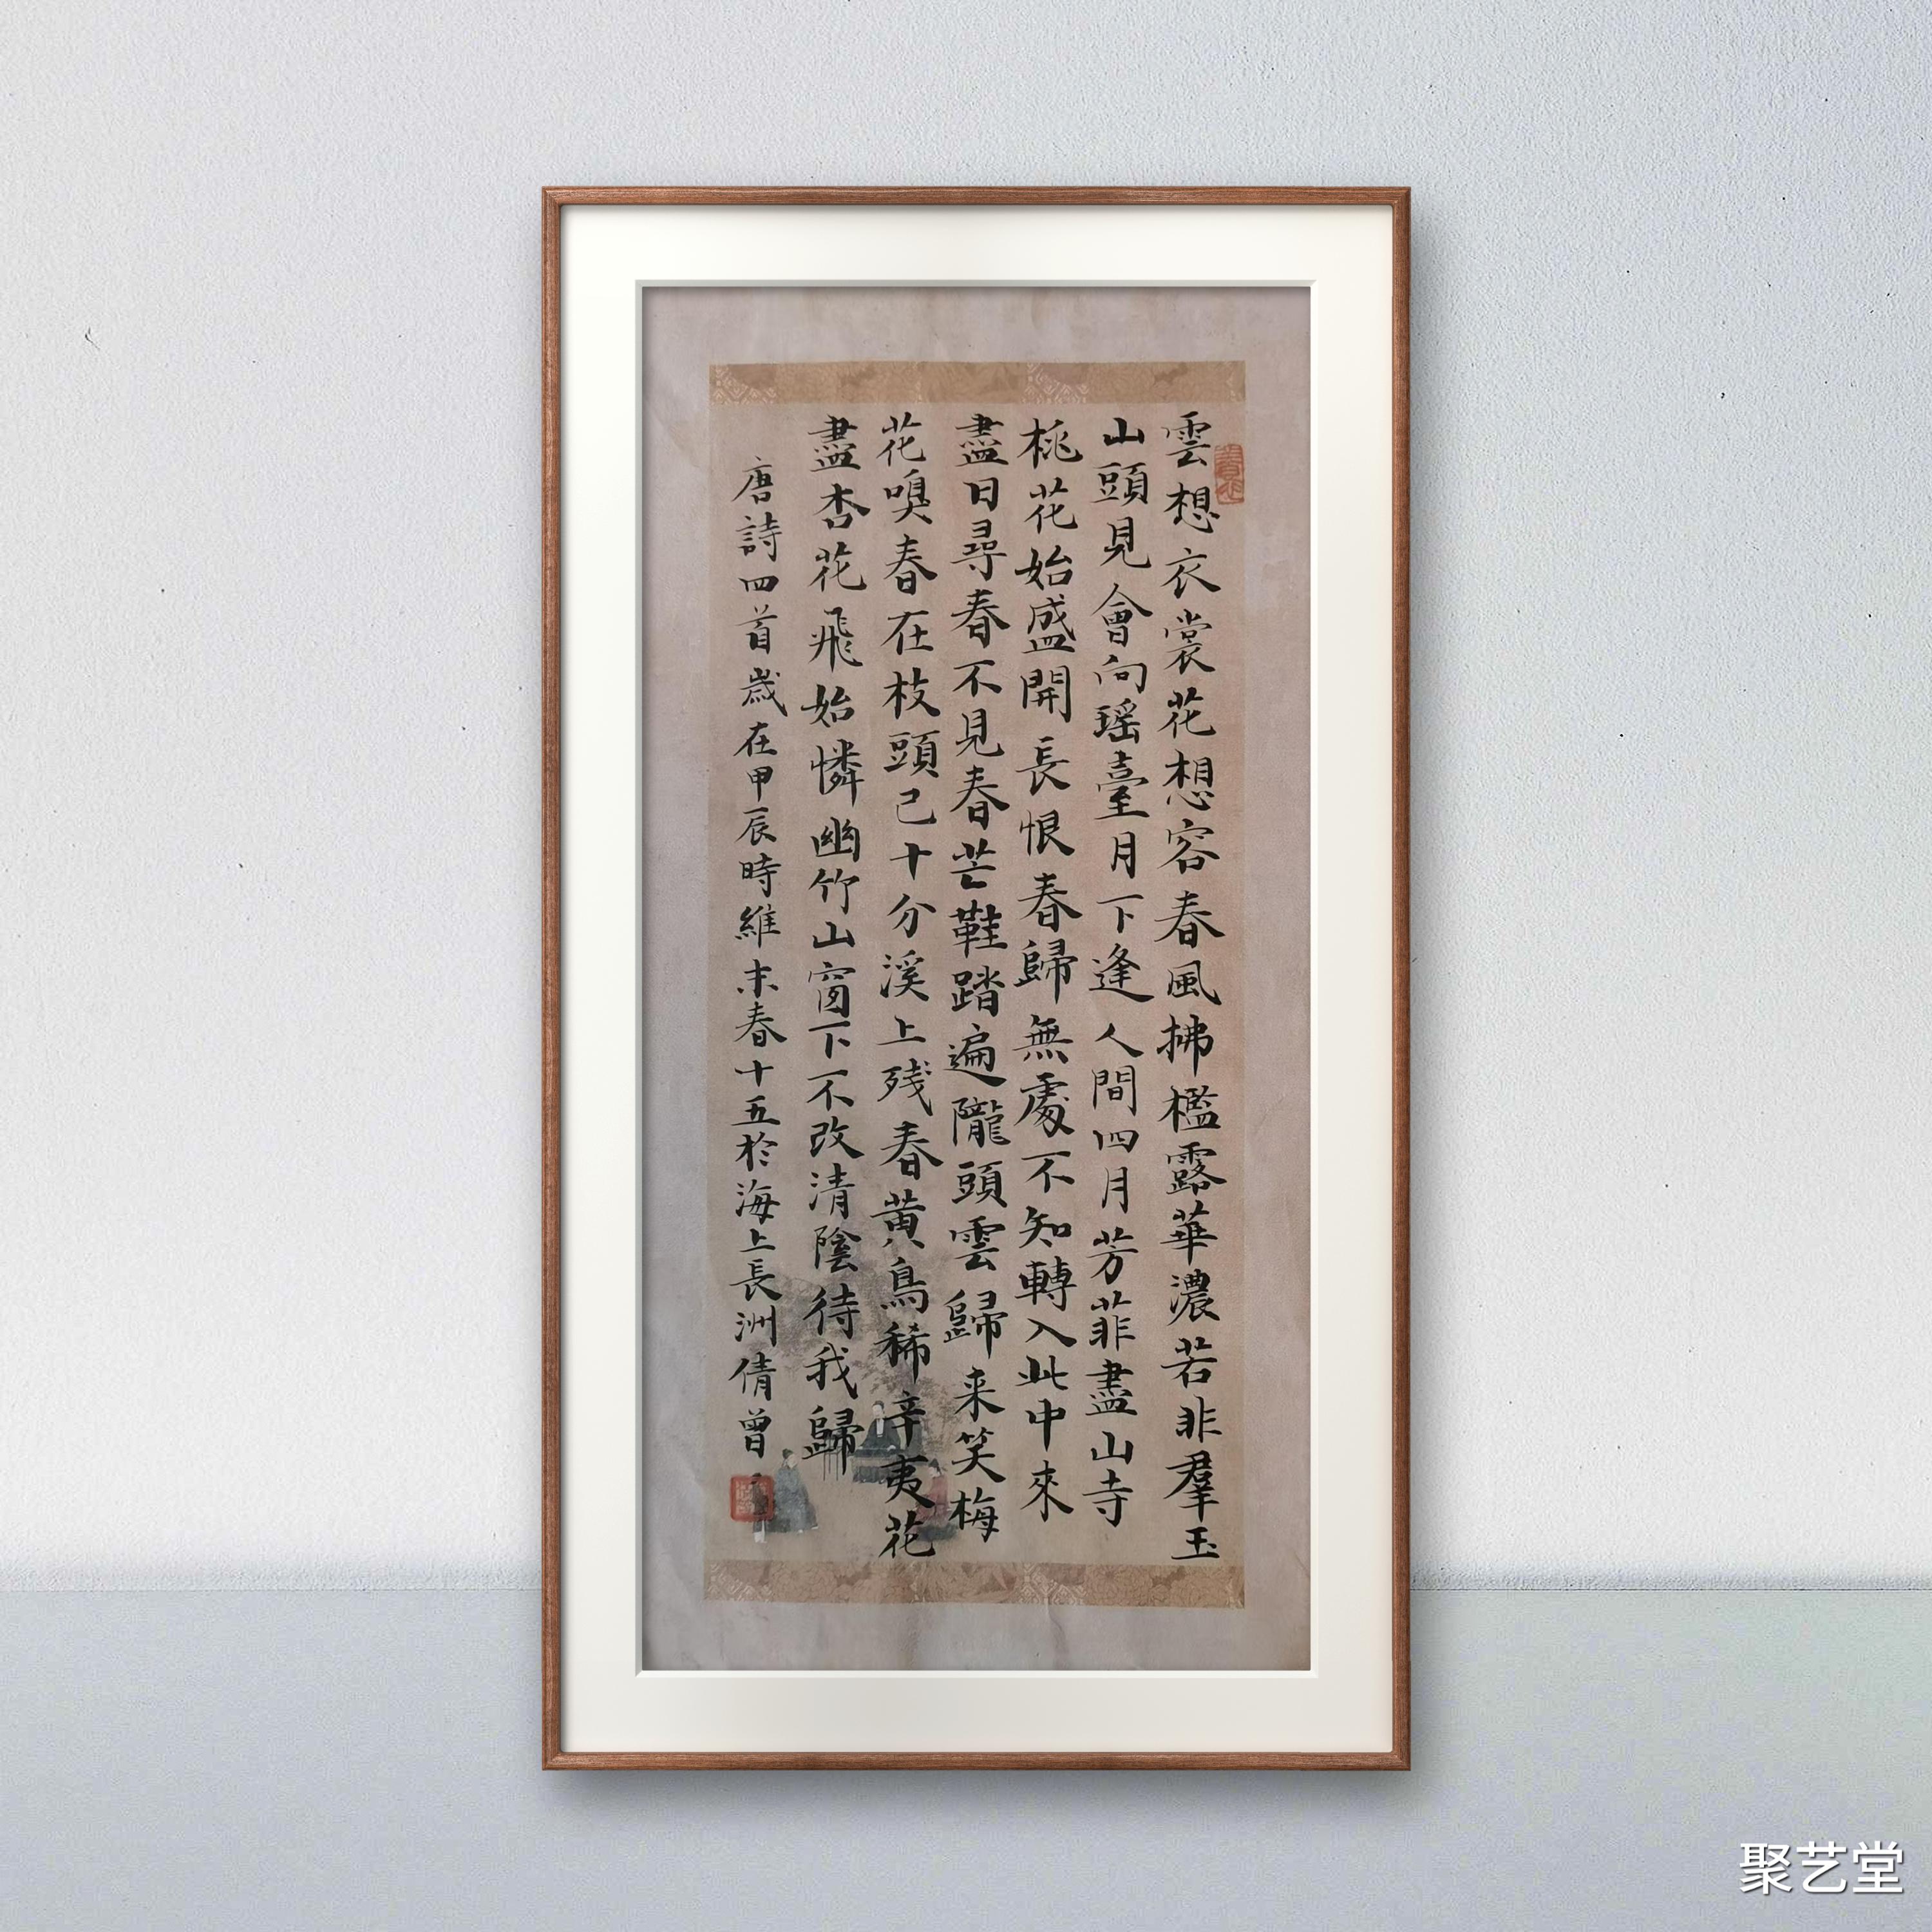 雲想衣裳花想容春風拂檻露華濃若非羣玉
山頭見會向瑶臺月下逢人間四月芳菲盡山寺
桃花始盛開長恨春歸無處不知轉入此中來
盡日尋春不見春芒鞋踏遍隴頭雲歸来笑梅
花嗅春在枝頭已十分溪上残春黄鳥稀辛夷花
盡杏花飛始憐幽竹山窗下不改清陰待我歸
唐詩四首歲在甲辰時維末春十五於海上長洲倩曾
聚艺堂